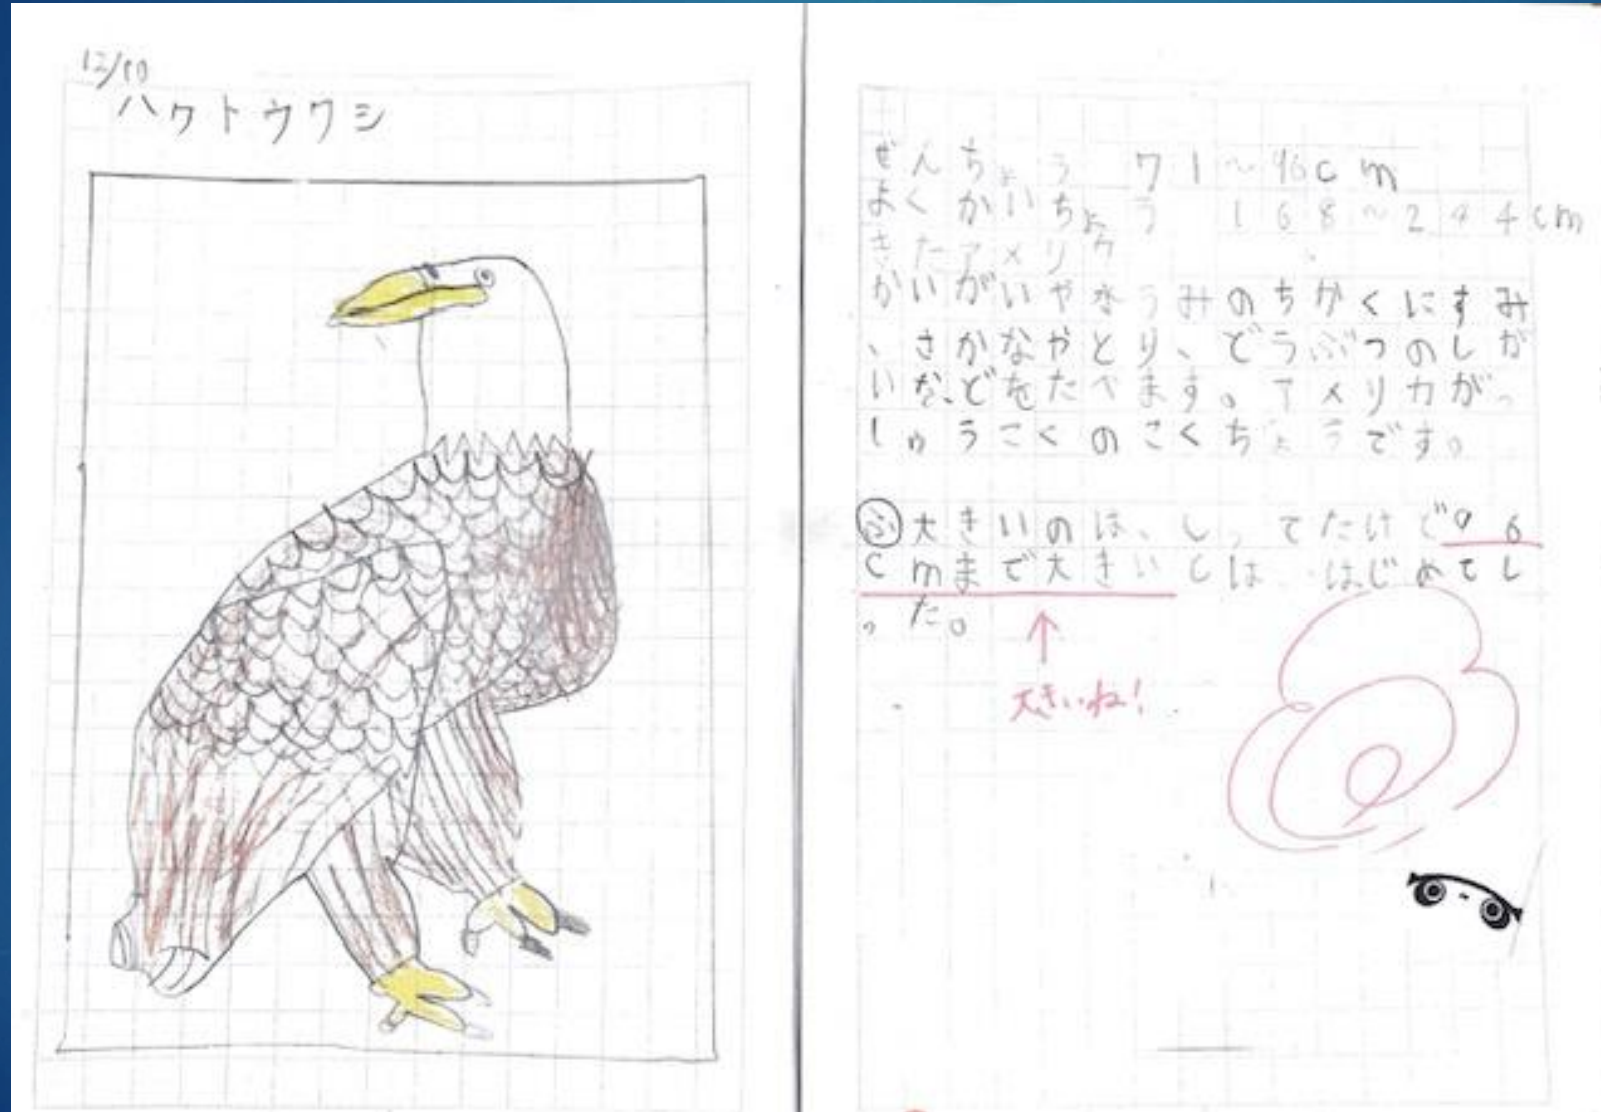 12/10
ハクトウワシ
ぜんちょう 71～96cm
よくかいちょう 168～244cm
きたアメリカ
かいがいや水うみのちかくにすみ
、さかなやとり、どうぶつのしが
いなどをたべます。アメリカがっ
しゅうこくのこくちょうです。
ふ大きいのは、しってたけど96
cmまで大きいとは、はじめてし
った。
大きいね!